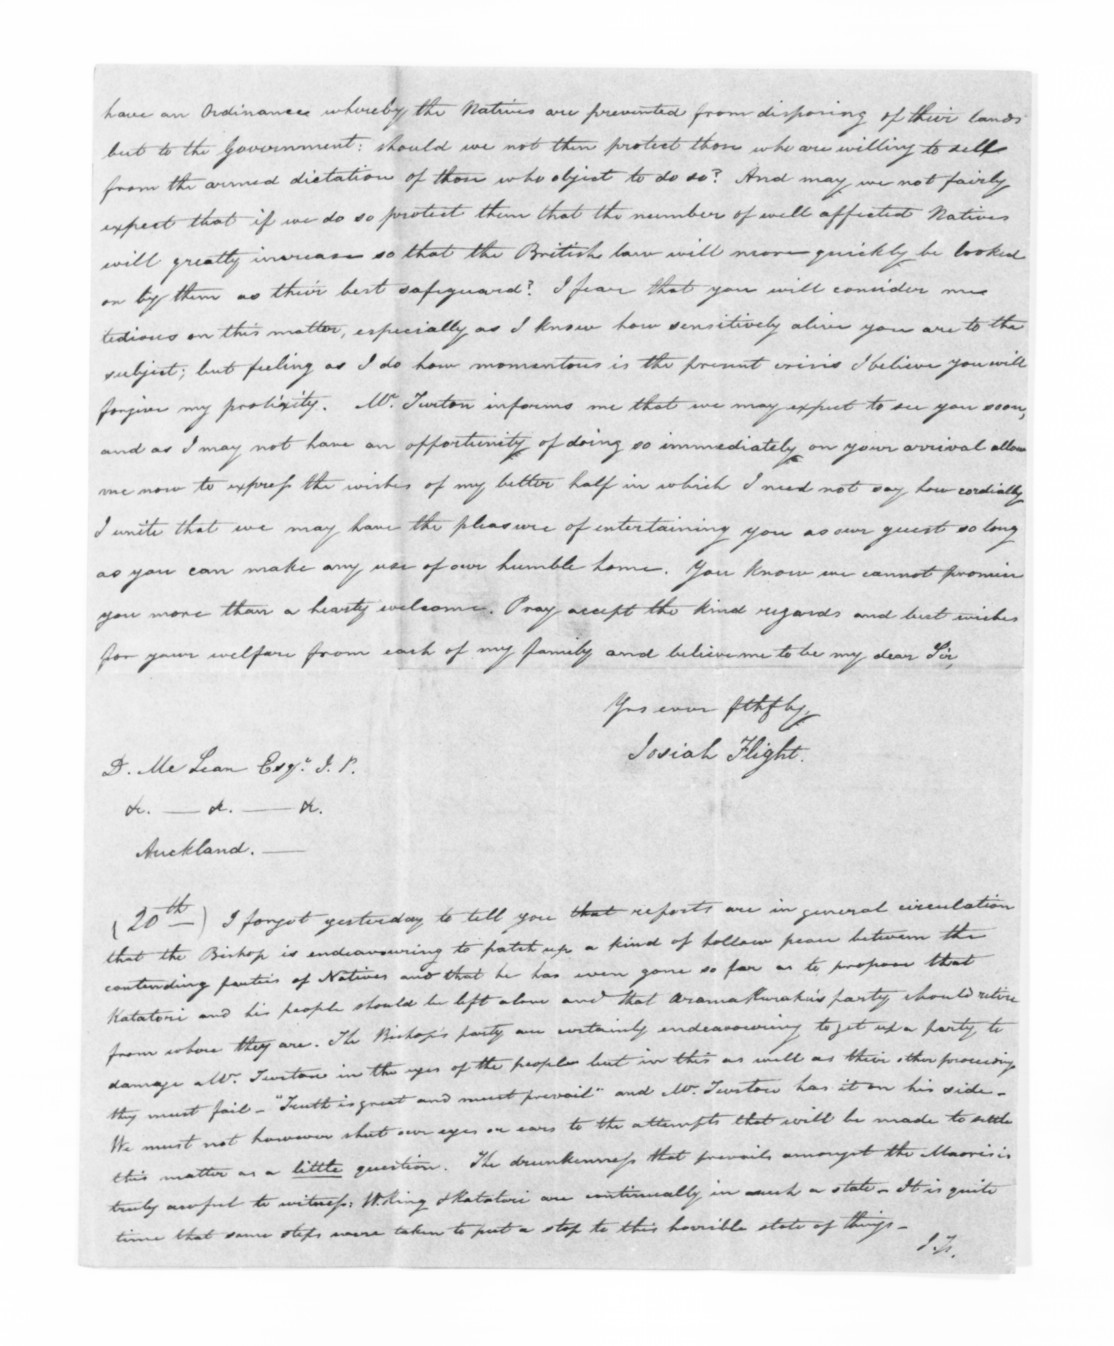 have an Ordinance whereby the Natives are prevented from disposing of their lands
but to the Government: should we not then protect those who are willing to sell
from the armed dictation of those who object to do so? And may we not fairly
expect that if we do so protect them that the number of well affected Natives
will greatly increase so that the British law will more quickly be looked
on by them as their best safeguard? I fear that you will consider me
tedious on this matter, especially as I know how sensitively alive you are to the
subject; but feeling as I do how momentous is the present crisis I believe you will
forgive my prolixity. Mr. Turton informs me that we may expect to see you soon,
and as I may not have an opportunity of doing so immediately on your arrival allow
me now to express the wishes of my better half in which I need not say how cordially
I unite that we may have the pleasure of entertaining you as our guest so long
as you can make any use of our humble home. You know we cannot promise
you more than a hearty welcome. Pray accept the kind regards and best wishes
for your welfare from each of my family and believe me to be my dear Sir,
Yrs ever fthfly,
Josiah Flight.
D. Mc Lean Esqr. J. P.
&c. — &c. — &c.
Auckland. —
(20th) I forgot yesterday to tell you that reports are in general circulation
that the Bishop is endeavouring to patch up a kind of hollow peace between the
contending parties of Natives and that he has even gone so far as to propose that
Katatori and his people should be left alone and that Aramakuraku's party should retire
from where they are. The Bishop's party are certainly endeavouring to get up a party to
damage Mr. Turton in the eyes of the people but in this as well as their other proceedings
they must fail - "Truth is great and must prevail" and Mr. Turton has it on his side -
We must not however shut our eyes or ears to the attempts that will be made to settle
this matter as a little question. The drunkenness that prevails amongst the Maories is
truly awful to witness: W. King & Katatori are continually in such a state - It is quite
time that some steps were taken to put a stop to this horrible state of things -
J. F.